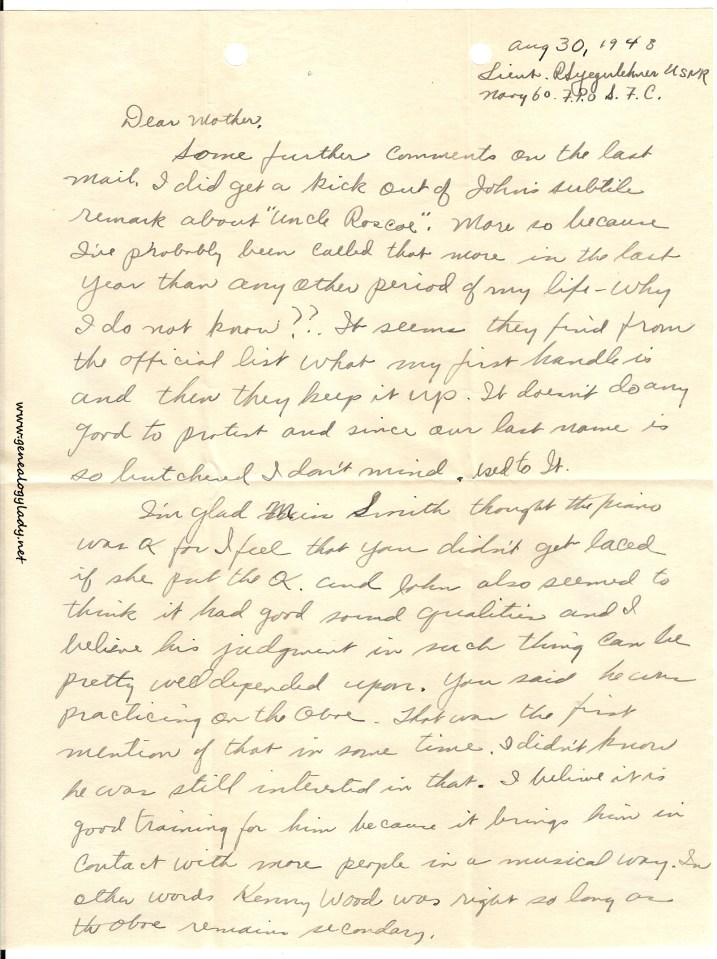 Aug 30, 1943
Lieut. R S Yegerlehner USNR
Navy 60. F.P.O S. F. C.
Dear Mother,
Some further comments on the last
mail. I did get a kick out of John's subtile
remark about "Uncle Roscoe". More so because
I've probably been called that more in the last
year than any other period of my life - why
I do not know??. It seems they find from
the official list what my first handle is
and then they keep it up. It doesn't do any
good to protest and since our last name is
so butchered I don't mind. used to It.
I'm glad Miss Smith thought the piano
was OK for I feel that you didn't get laced
if she put the OK. and John also seemed to
think it had good sound qualities and I
believe his judgment in such thing can be
pretty well depended upon. You said he was
practicing on the Oboe. That was the first
mention of that in some time. I didn't know
he was still interested in that. I believe it is
good training for him because it brings him in
contact with more people in a musical way. In
other words Kenny Wood was right so long as
the oboe remains secondary.
www.genealogylady.net